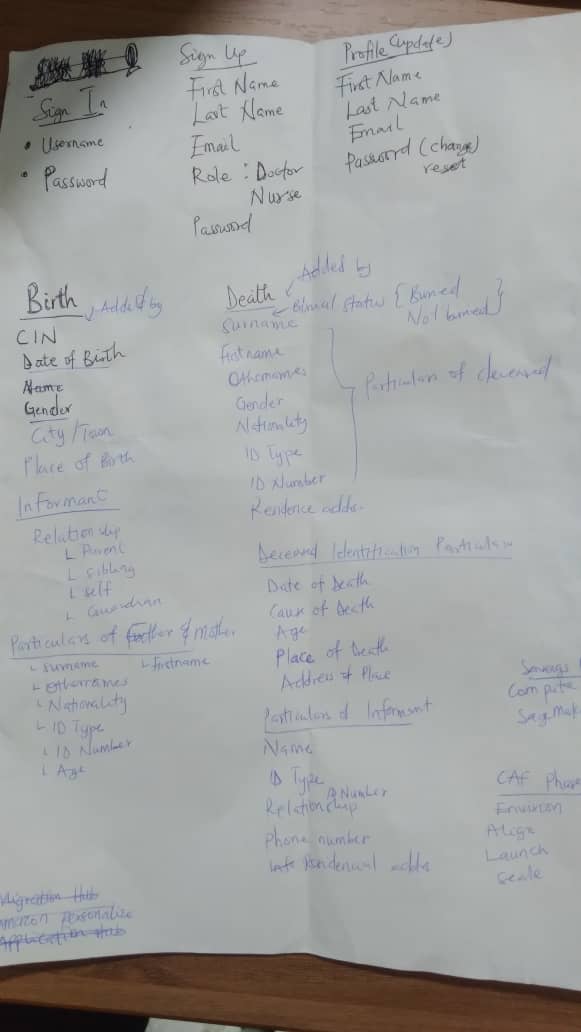 Sign In
• Username
• Password
Sign Up
First Name
Last Name
Email
Role : Doctor
Nurse
Password
Profile (update)
First Name
Last Name
Email
Password (change
reset
Birth
Added by
CIN
Date of Birth
Name
Gender
City/Town
Place of Birth
Informant
Relationship
Parent
Sibling
self
Guardian
Particulars of Father & Mother
surname
Firstname
othernames
Nationality
ID Type
ID Number
Age
Death
Added by
Burial status { Buried
Not buried }
Surname
Firstname
Othernames
Gender
Nationality
ID Type
ID Number
Particulars of deceased
Residence addr.
Deceased Identification Particulars
Date of Death
Cause of Death
Age
Place of Death
Address of Place
Particulars of Informant
Name
ID Type
ID Number
Relationship
Phone number
Residential addr
Savings
Compute
SageMak
CAF Phas
Environ
Align
Launch
Scale
Migration Hub
Amazon Personalize
Application